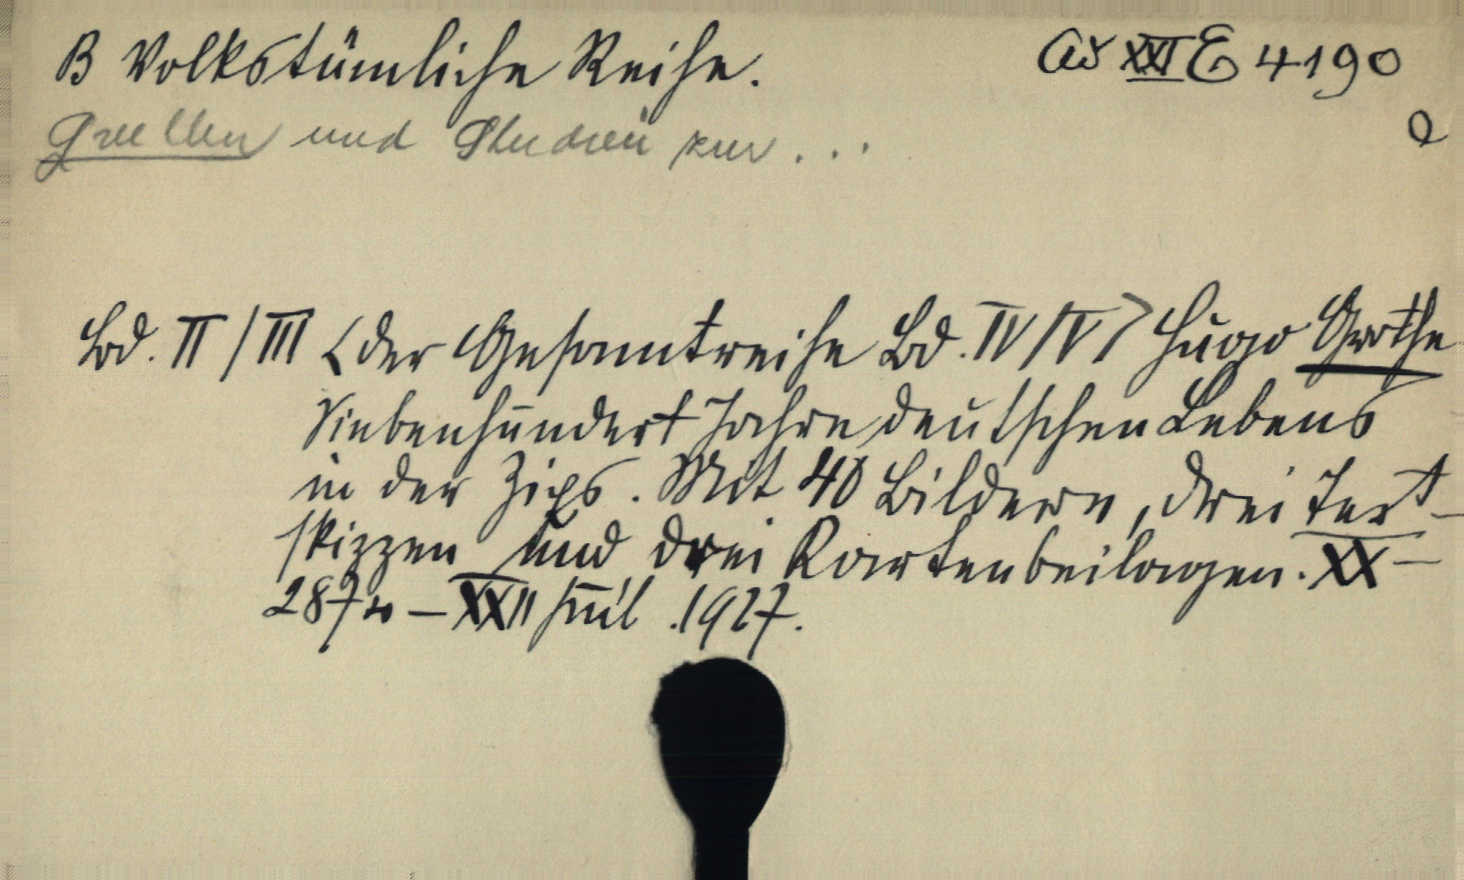 B Volkstümliche Reihe. Ad XXI E 4190
Quellen und Studien zur... a
Bd. II/III <der Gesamtreihe Bd. IV/V> Hugo Grothe
Siebenhundert Jahre deutschen Lebens
in der Zips. Mit 40 Bildern, drei Text-
skizzen und drei Kartenbeilagen. XX-
287 - XXII 1927.